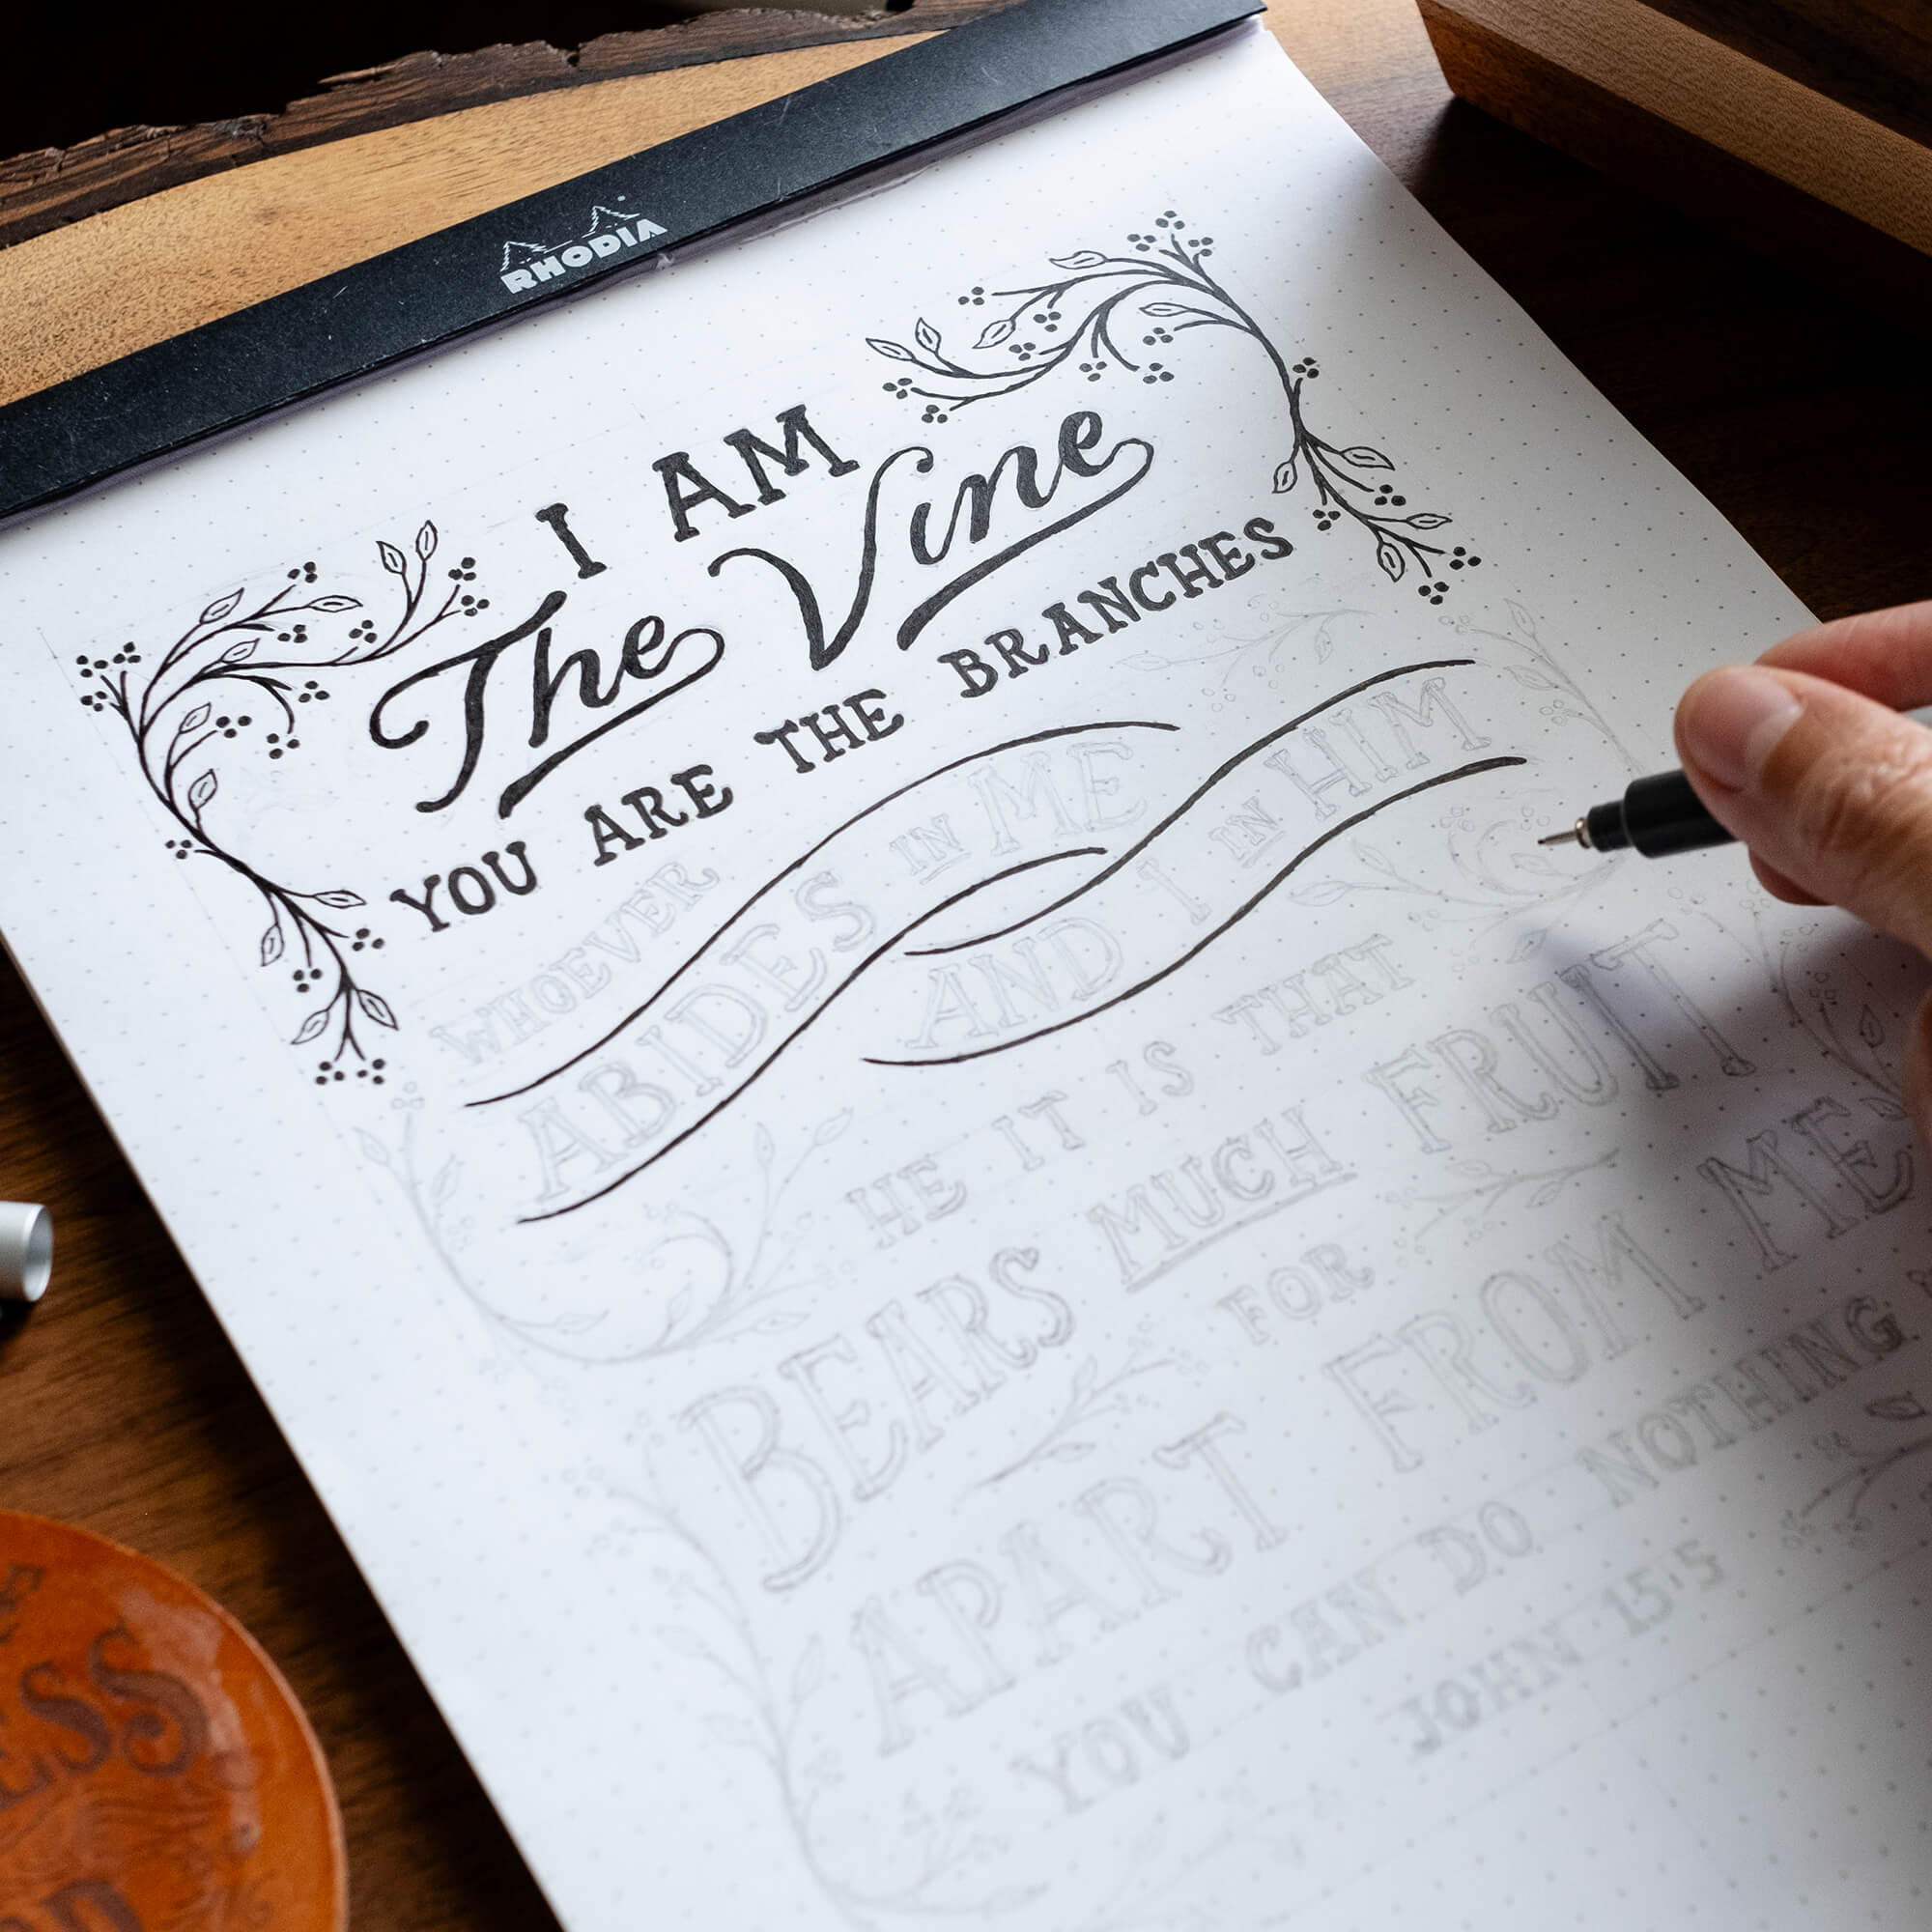 RHODIA
I AM
The Vine
YOU ARE THE BRANCHES
WHOEVER
ABIDES IN ME
AND I IN HIM
HE IT IS THAT
BEARS MUCH FRUIT
FOR
APART FROM ME
YOU CAN DO NOTHING
JOHN 15:5